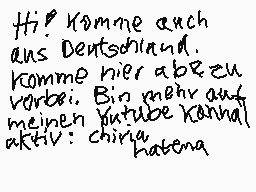 Hi! Komme auch
aus Deutschland.
Komme hier ab & zu
vorbei. Bin mehr auf
meinen Yutube Kannal
aktiv: chiria
hatena